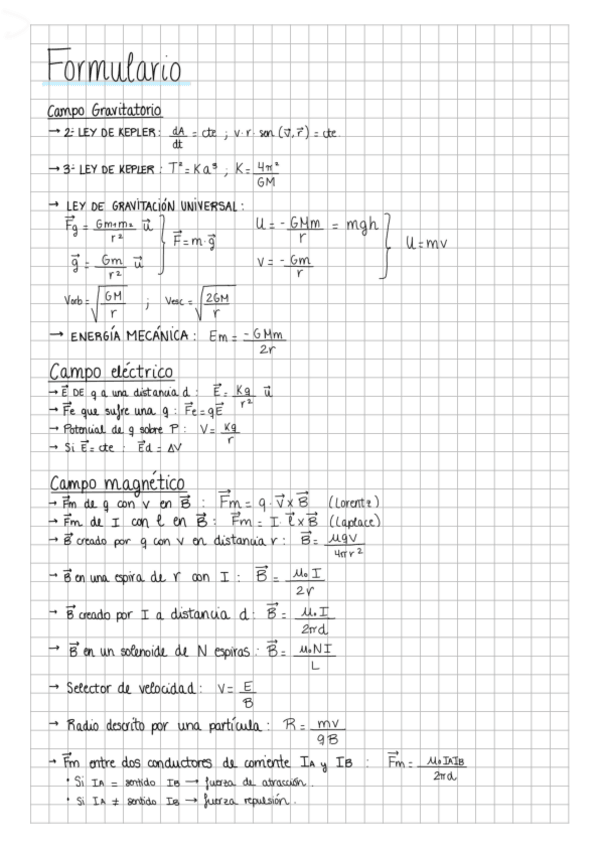 Formulario
Campo Gravitatorio
→ 2ª LEY DE KEPLER: dA/dt = cte ; v·r·sen (v⃗, r⃗) = cte
→ 3ª LEY DE KEPLER : T² = Ka³ ; K = 4π²/GM
→ LEY DE GRAVITACIÓN UNIVERSAL :
F⃗g = Gm₁m₂/r² u⃗ } F⃗ = m·g⃗ U = -GMm/r = mgh } U = mv
g⃗ = Gm/r² u⃗ V = -Gm/r
Vorb = √(GM/r) ; Vesc = √(2GM/r)
→ ENERGÍA MECÁNICA : Em = -GMm/2r
Campo eléctrico
→ E⃗ DE q a una distancia d : E⃗ = Kq/r² u⃗
→ F⃗e que sufre una q : F⃗e = qE⃗
→ Potencial de q sobre P : V = Kq/r
→ Si E⃗ = cte : E⃗d = ΔV
Campo magnético
→ F⃗m de q con v en B⃗ : F⃗m = q·v⃗ x B⃗ (Lorentz)
→ F⃗m de I con ℓ en B⃗ : F⃗m = I·ℓ⃗ x B⃗ (Laplace)
→ B⃗ creado por q con v en distancia r : B⃗ = μqv/4πr²
→ B⃗ en una espira de r con I : B⃗ = μ₀I/2r
→ B⃗ creado por I a distancia d : B⃗ = μ₀I/2πd
→ B⃗ en un solenoide de N espiras : B⃗ = μ₀NI/L
→ Selector de velocidad : v = E/B
→ Radio descrito por una partícula : R = mv/qB
→ F⃗m entre dos conductores de corriente IA y IB : F⃗m = μ₀IAIB/2πd
• Si IA = sentido IB → fuerza de atracción.
• Si IA ≠ sentido IB → fuerza repulsión.